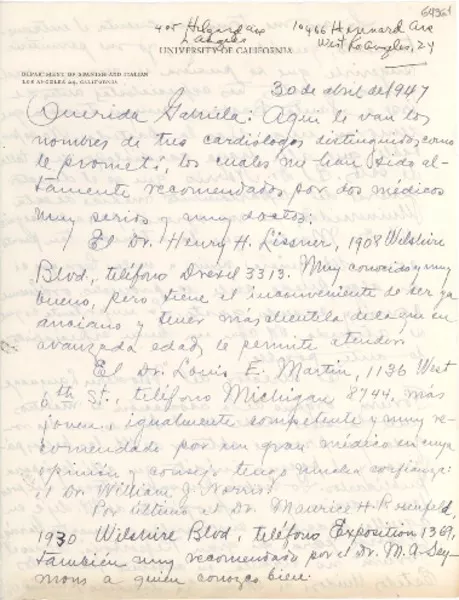 405 Hilgard Ave
L Angeles
10966 Hennard Ave
West Los Angeles, 24
UNIVERSITY OF CALIFORNIA
DEPARTMENT OF SPANISH AND ITALIAN
LOS ANGELES 24, CALIFORNIA
30 de abril de 1947
Querida Gabriela: Aquí le van los
nombres de tres cardiólogos distinguidos, como
le prometí, los cuales me han sido al-
tamente recomendados por dos médicos
muy serios y muy doctos:
El Dr. Henry H. Lissner, 1908 Wilshire
Blvd., teléfono Drexel 3313. Muy conocido y muy
bueno, pero tiene el inconveniente de ser ya
anciano y tener más clientela de la que su
avanzada edad le permite atender.
El Dr. Louis E. Martin, 1136 West
6th St., teléfono Michigan 8744, más
joven, igualmente competente y muy re-
comendado por un gran médico en cuya
opinión y consejo tengo mucha confianza:
el Dr. William J. Norris.
Por último el Dr. Maurice H. Rosenfeld,
1930 Wilshire Blvd, teléfono Exposition 1369,
también muy recomendado por el Dr. M. A. Sey-
mons a quien conozco bien.